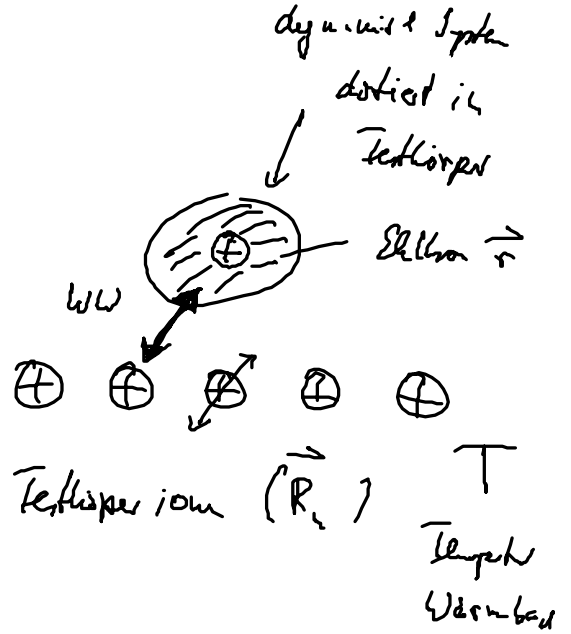 System
dotiert in
Festkörper
Elektron r⃗
WW
Festkörper ionen (R⃗ₙ)
T
Temperatur
Wärmebad